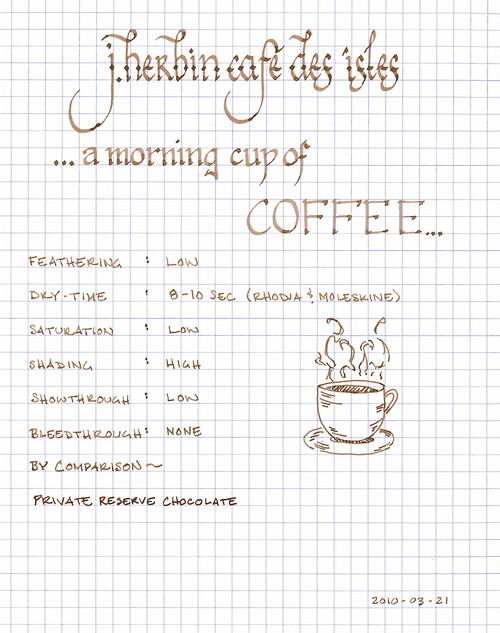 j. herbin café des isles
... a morning cup of
COFFEE...
FEATHERING : LOW
DRY-TIME : 8-10 SEC (RHODIA & MOLESKINE)
SATURATION : LOW
SHADING : HIGH
SHOWTHROUGH : LOW
BLEEDTHROUGH : NONE
BY COMPARISON ~
PRIVATE RESERVE CHOCOLATE
2010-03-21